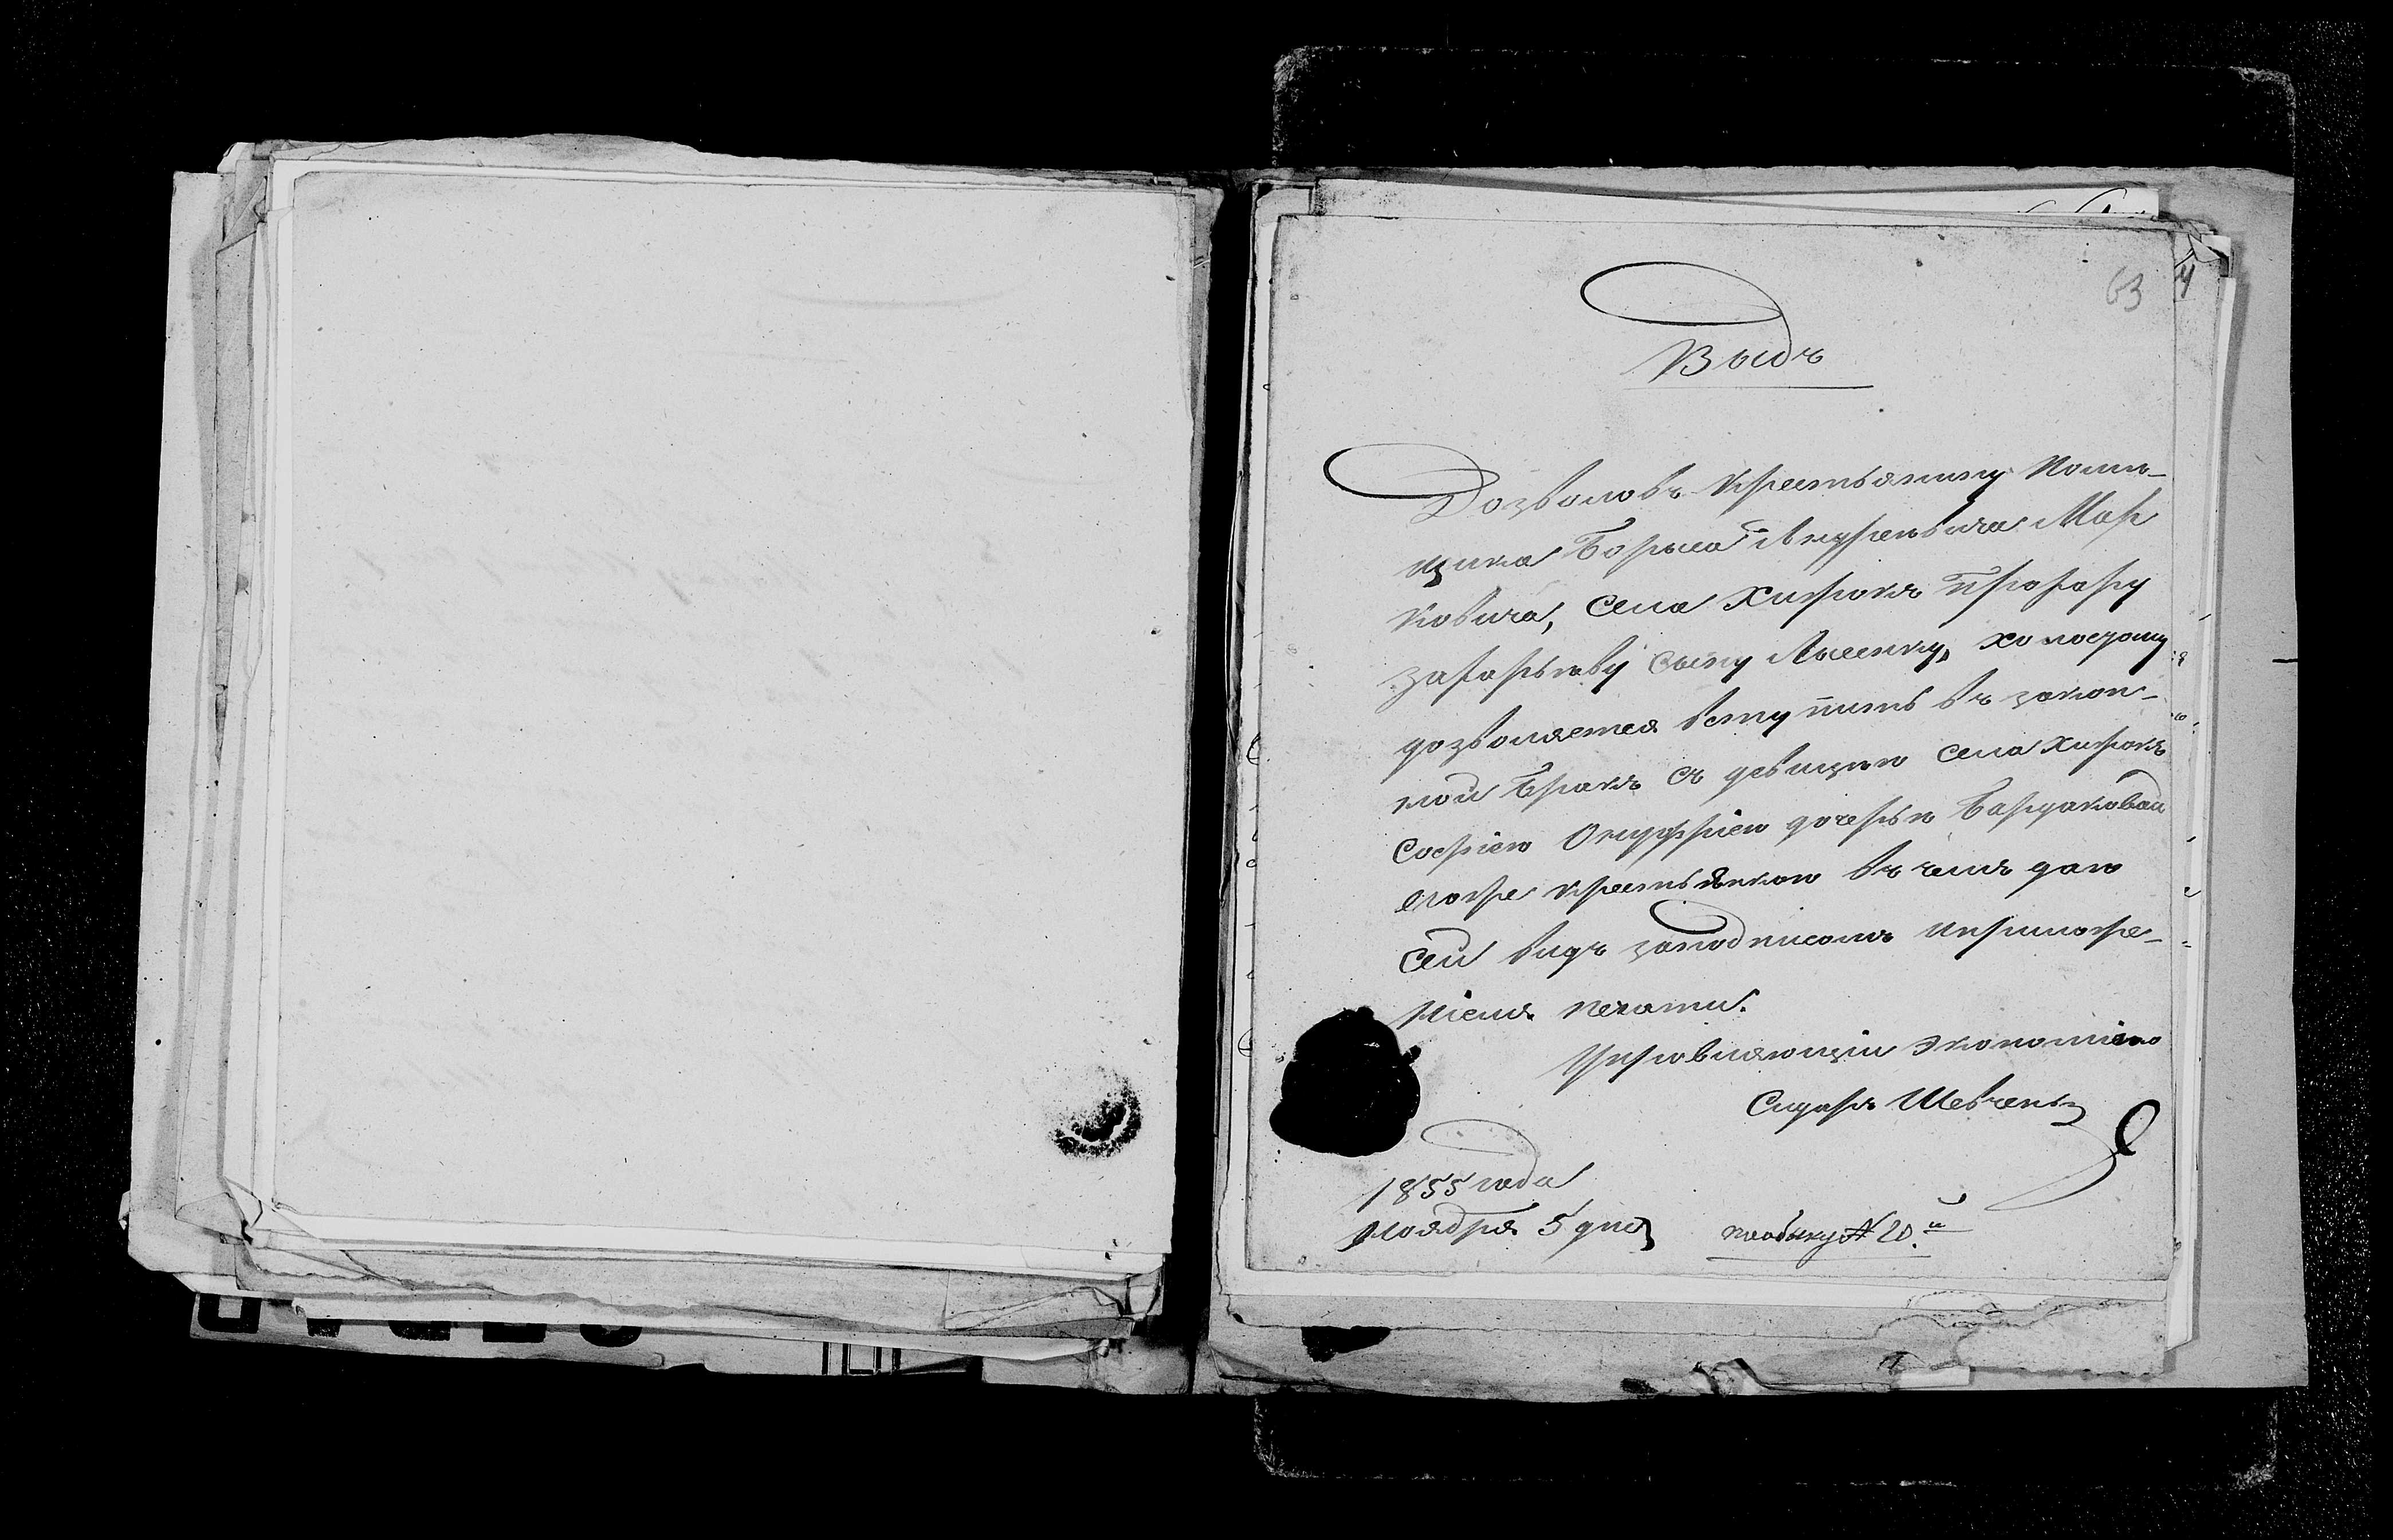 63
Выдъ
Дозволовъ крестьянину поме-
щика Бориса Андреевича Мар
ковича, села Хижокъ Прохору
Захарьеву сыну Лысенку, холостому
дозволяется вступить въ закон-
ной бракъ съ девицею села Хижокъ
Софіею Онуфріею дочерью Бардаковой
егоже крестьянкою въ чемъ даю
сей видъ заподписомъ иприложе-
ніемъ печати.
Управляющій экономіею
Сидоръ Шевченко
1855 года
Ноября 5 дня
№ 20.й